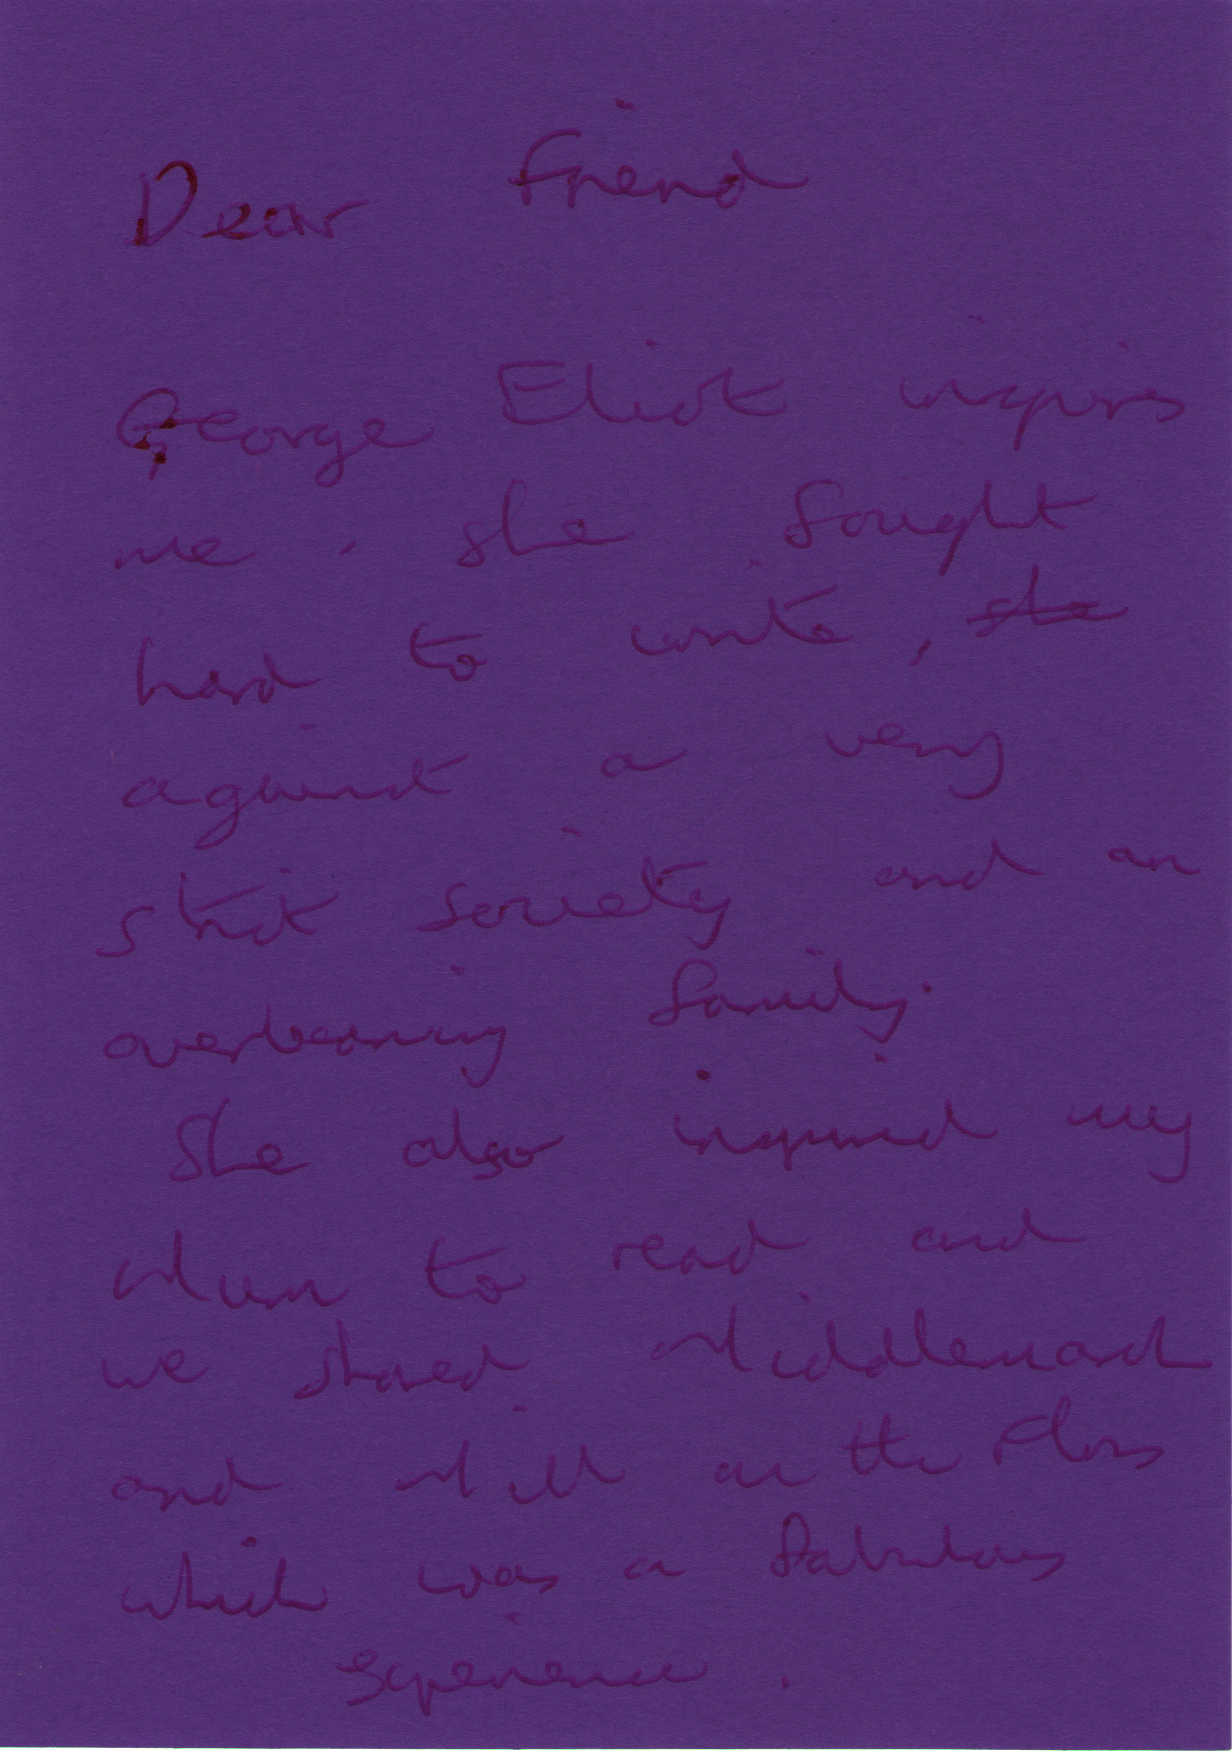 Dear Friend
George Eliot inspires
me. she fought
hard to write, ~~she~~
against a very
strict society and an
overbearing family.
She also inspired my
Mum to read and
we shared Middlemarch
and Mill on the Floss
which was a fabulous
experience.